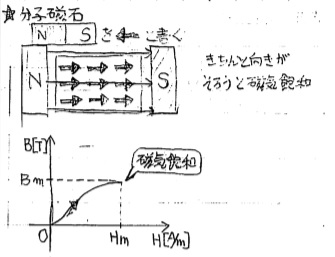 ☆分子磁石
N S を ⇐ こ書く
N S
きちんと向きが
そろうと磁気飽和
B[T]
磁気飽和
Bm
O Hm H[A/m]